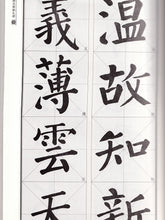 温故知新
義薄雲天